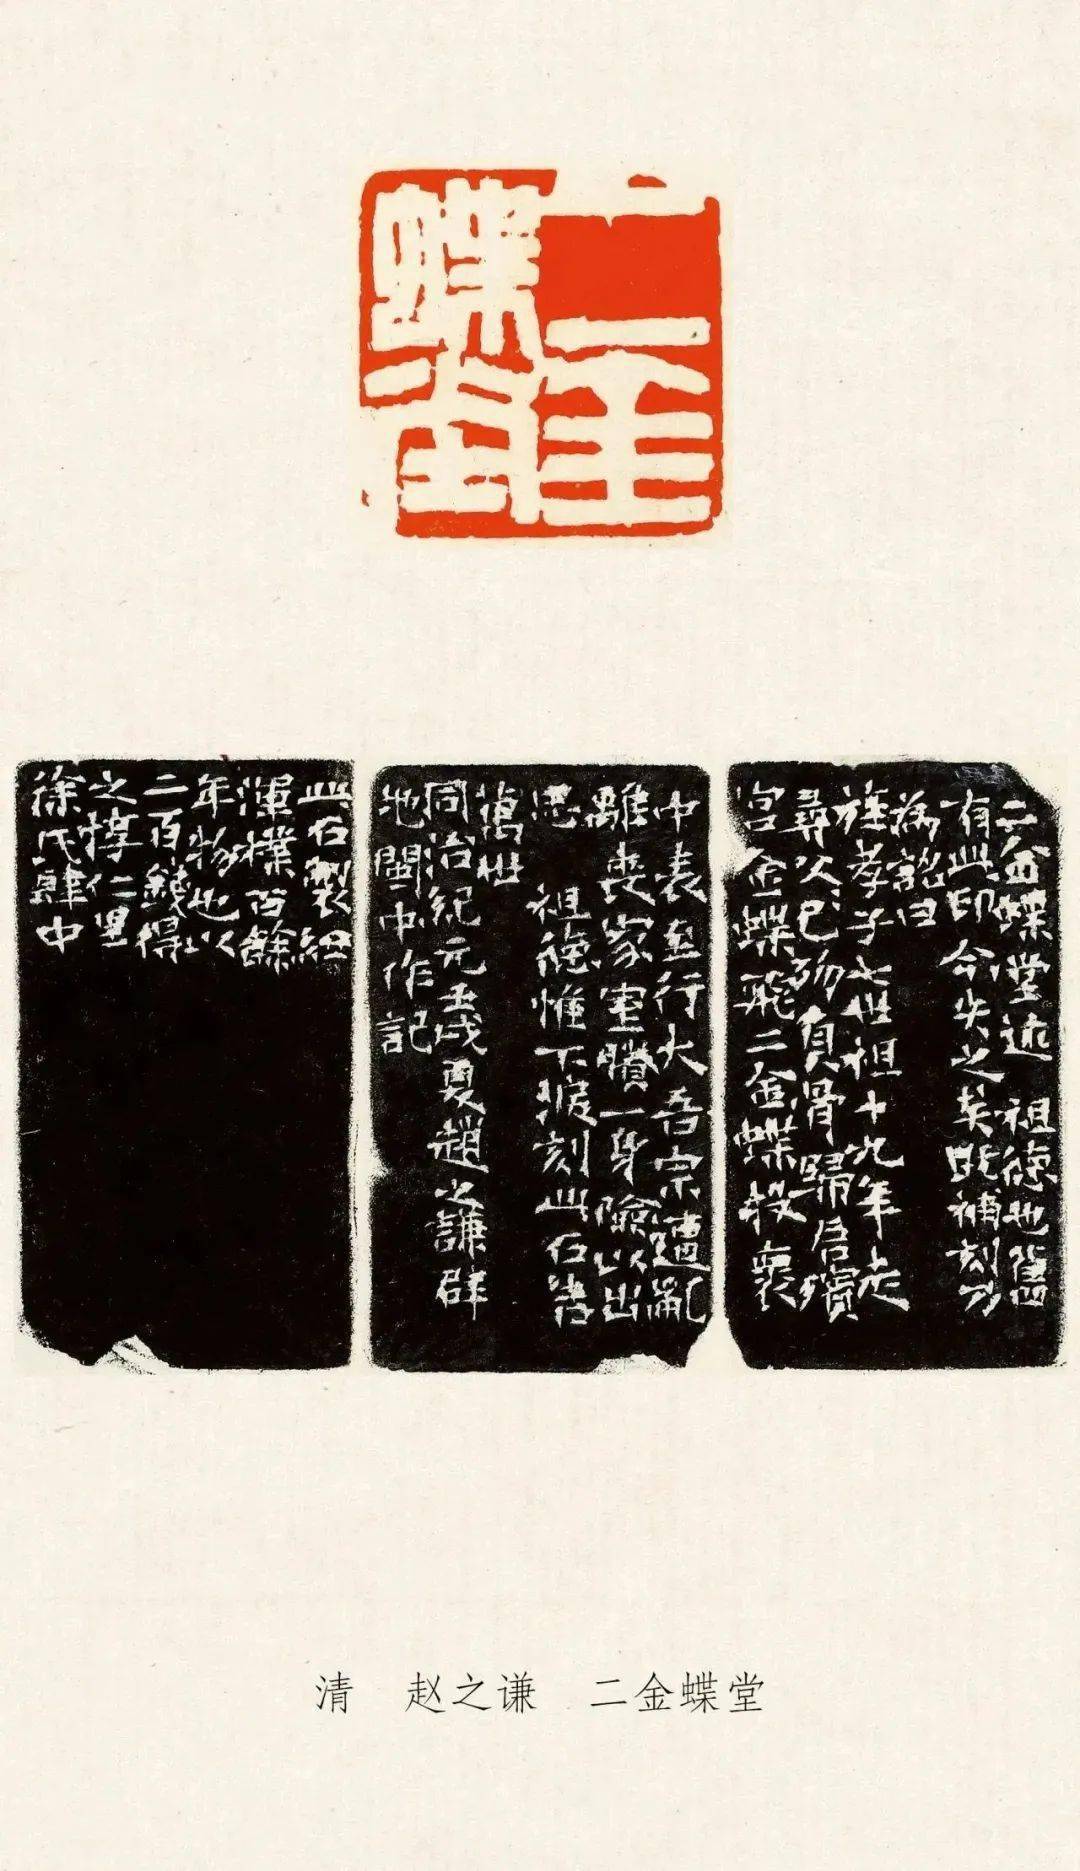 二金
蝶堂
二金蝶堂述 祖德也舊
有此印今失之矣既補刻乃
為銘曰
旌孝子七世祖十九年走
尋父〻已歾負骨歸启殯
宮金蝶飛二金蝶投褱
中表至行大吾宗遭亂
離喪家室賸一身險以出
思 祖德惟下淚刻此石告
萬世
同治紀元壬戌夏趙之謙辟
地閩中作記
此石製絕
渾樸百餘
年物也以
二百錢得
之惇仁里
徐氏肆中
清 赵之谦 二金蝶堂